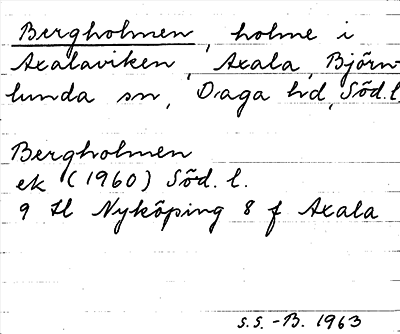 Bergholmen, holme i
Axalaviken, Axala, Björn-
lunda sn, Daga hd, Söd.l.
Bergholmen
ek (1960) Söd. l.
9 Hl Nyköping 8 f Axala
S.S.-B. 1963